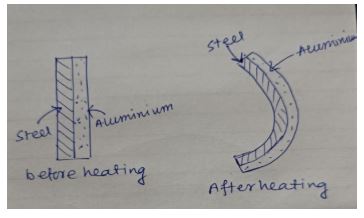 Steel
Aluminium
before heating
Steel
Aluminiu
After heating